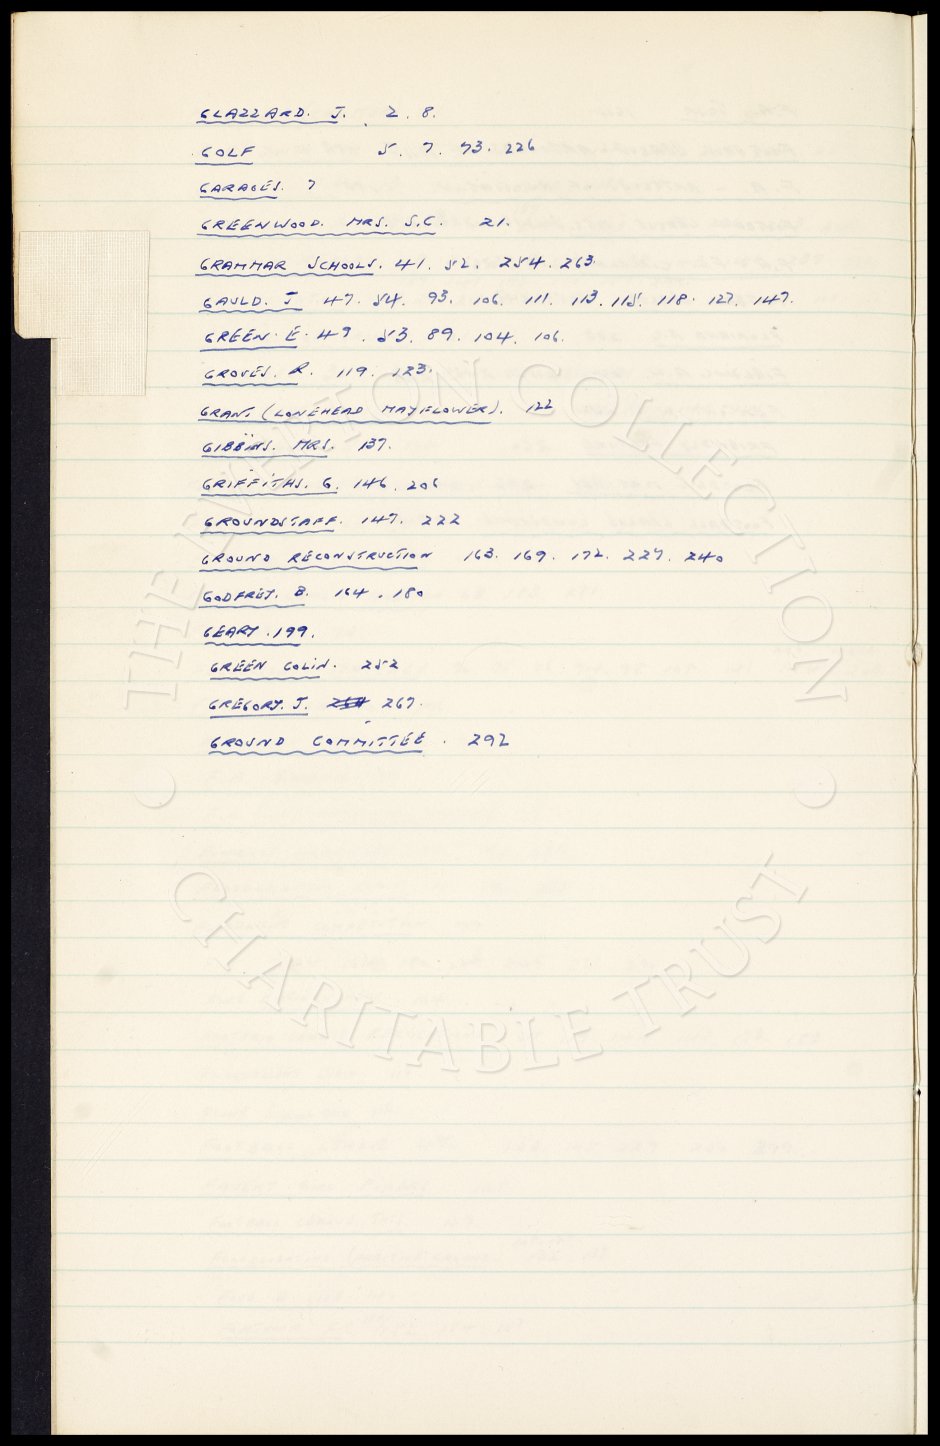 GLAZZARD. J. 2. 8.
GOLF 5. 7. 73. 226
GARAGES. 7
GREENWOOD. MRS. S.C. 21.
GRAMMAR SCHOOLS. 41. 52. 254. 263.
GAULD. J 47. 54. 93. 106. 111. 113. 115. 118. 127. 147.
GREEN. E. 49. 53. 89. 104. 106.
GROVES. R. 119. 123.
GRANT (LONEHEAD MAYFLOWER). 122
GIBBINS. MRS. 137.
GRIFFITHS. G. 146. 206
GROUNDSTAFF. 147. 222
GROUND RECONSTRUCTION 163. 169. 172. 227. 240
GODFREY. B. 164. 180
GEARY. 199.
GREEN COLIN. 252
GREGORY. J. 267.
GROUND COMMITTEE. 292
THE WILTON COLLECTION
CHARITABLE TRUST